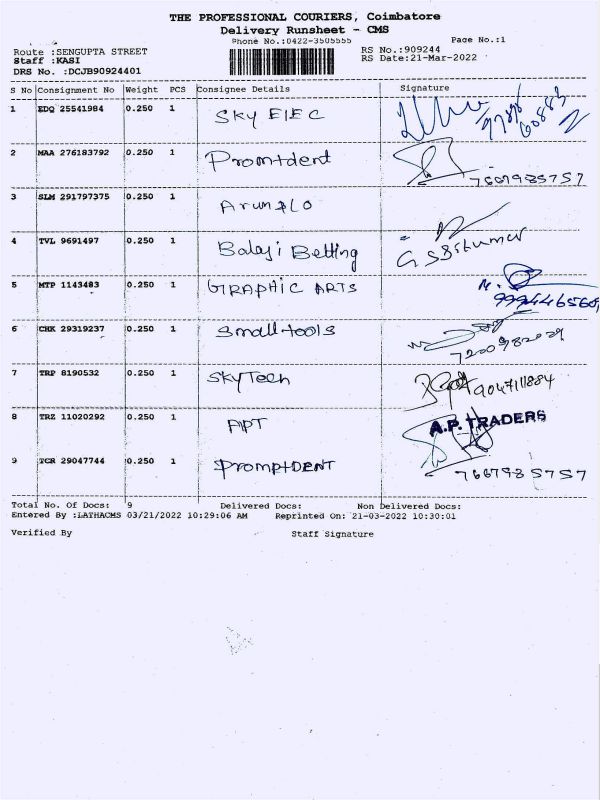 THE PROFESSIONAL COURIERS, Coimbatore
Delivery Runsheet - CMS
Phone No.:0422-3505555 Page No.:1
Route :SENGUPTA STREET RS No.:909244
Staff :KASI RS Date:21-Mar-2022
DRS No. :DCJB90924401
S No Consignment No Weight PCS Consignee Details Signature
1 EDQ 25541984 0.250 1 SKY ElEC
2 MAA 276183792 0.250 1 Promtdent
7667985757
3 SLM 291797375 0.250 1 Arumlo
4 TVL 9691497 0.250 1 Balaji Betting
5 MTP 1143483 0.250 1 GRAPHIC ARTS
6 CHK 29319237 0.250 1 Small tools
7 TRP 8190532 0.250 1 SKYTech 9047111884
8 TRZ 11020292 0.250 1 APT A.P. TRADERS
9 TCR 29047744 0.250 1 PromptDENT
7667985757
Total No. Of Docs: 9 Delivered Docs: Non Delivered Docs:
Entered By :LATHACMS 03/21/2022 10:29:06 AM Reprinted On: 21-03-2022 10:30:01
Verified By Staff Signature